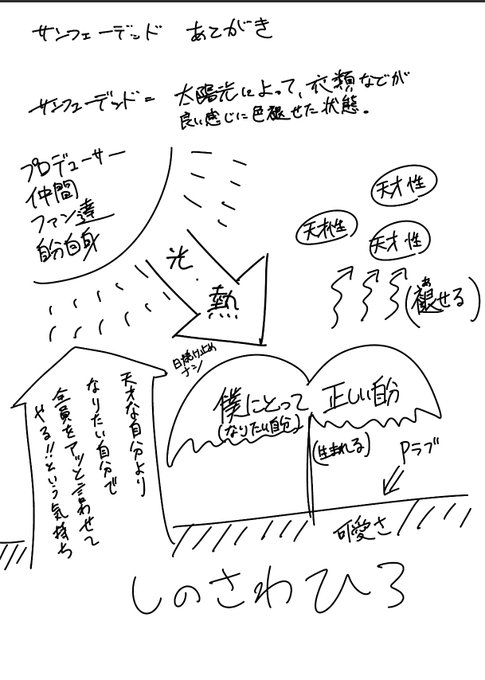 サンフェーデッド あてがき
サンフェーデッド = 太陽光によって、衣類などが
良い感じに色褪せた状態。
プロデューサー
仲間
ファン達
自分自身
光・熱
天才性
天才性
天才性
(褪せる)
あ
日焼け止め
ナシ
僕にとって
(なりたい自分)
正しい自分
(生まれる)
Pラブ
可愛さ
天才な自分より
なりたい自分で
全員をアッと言わせて
やる!!という気持ち
しのさわひろ